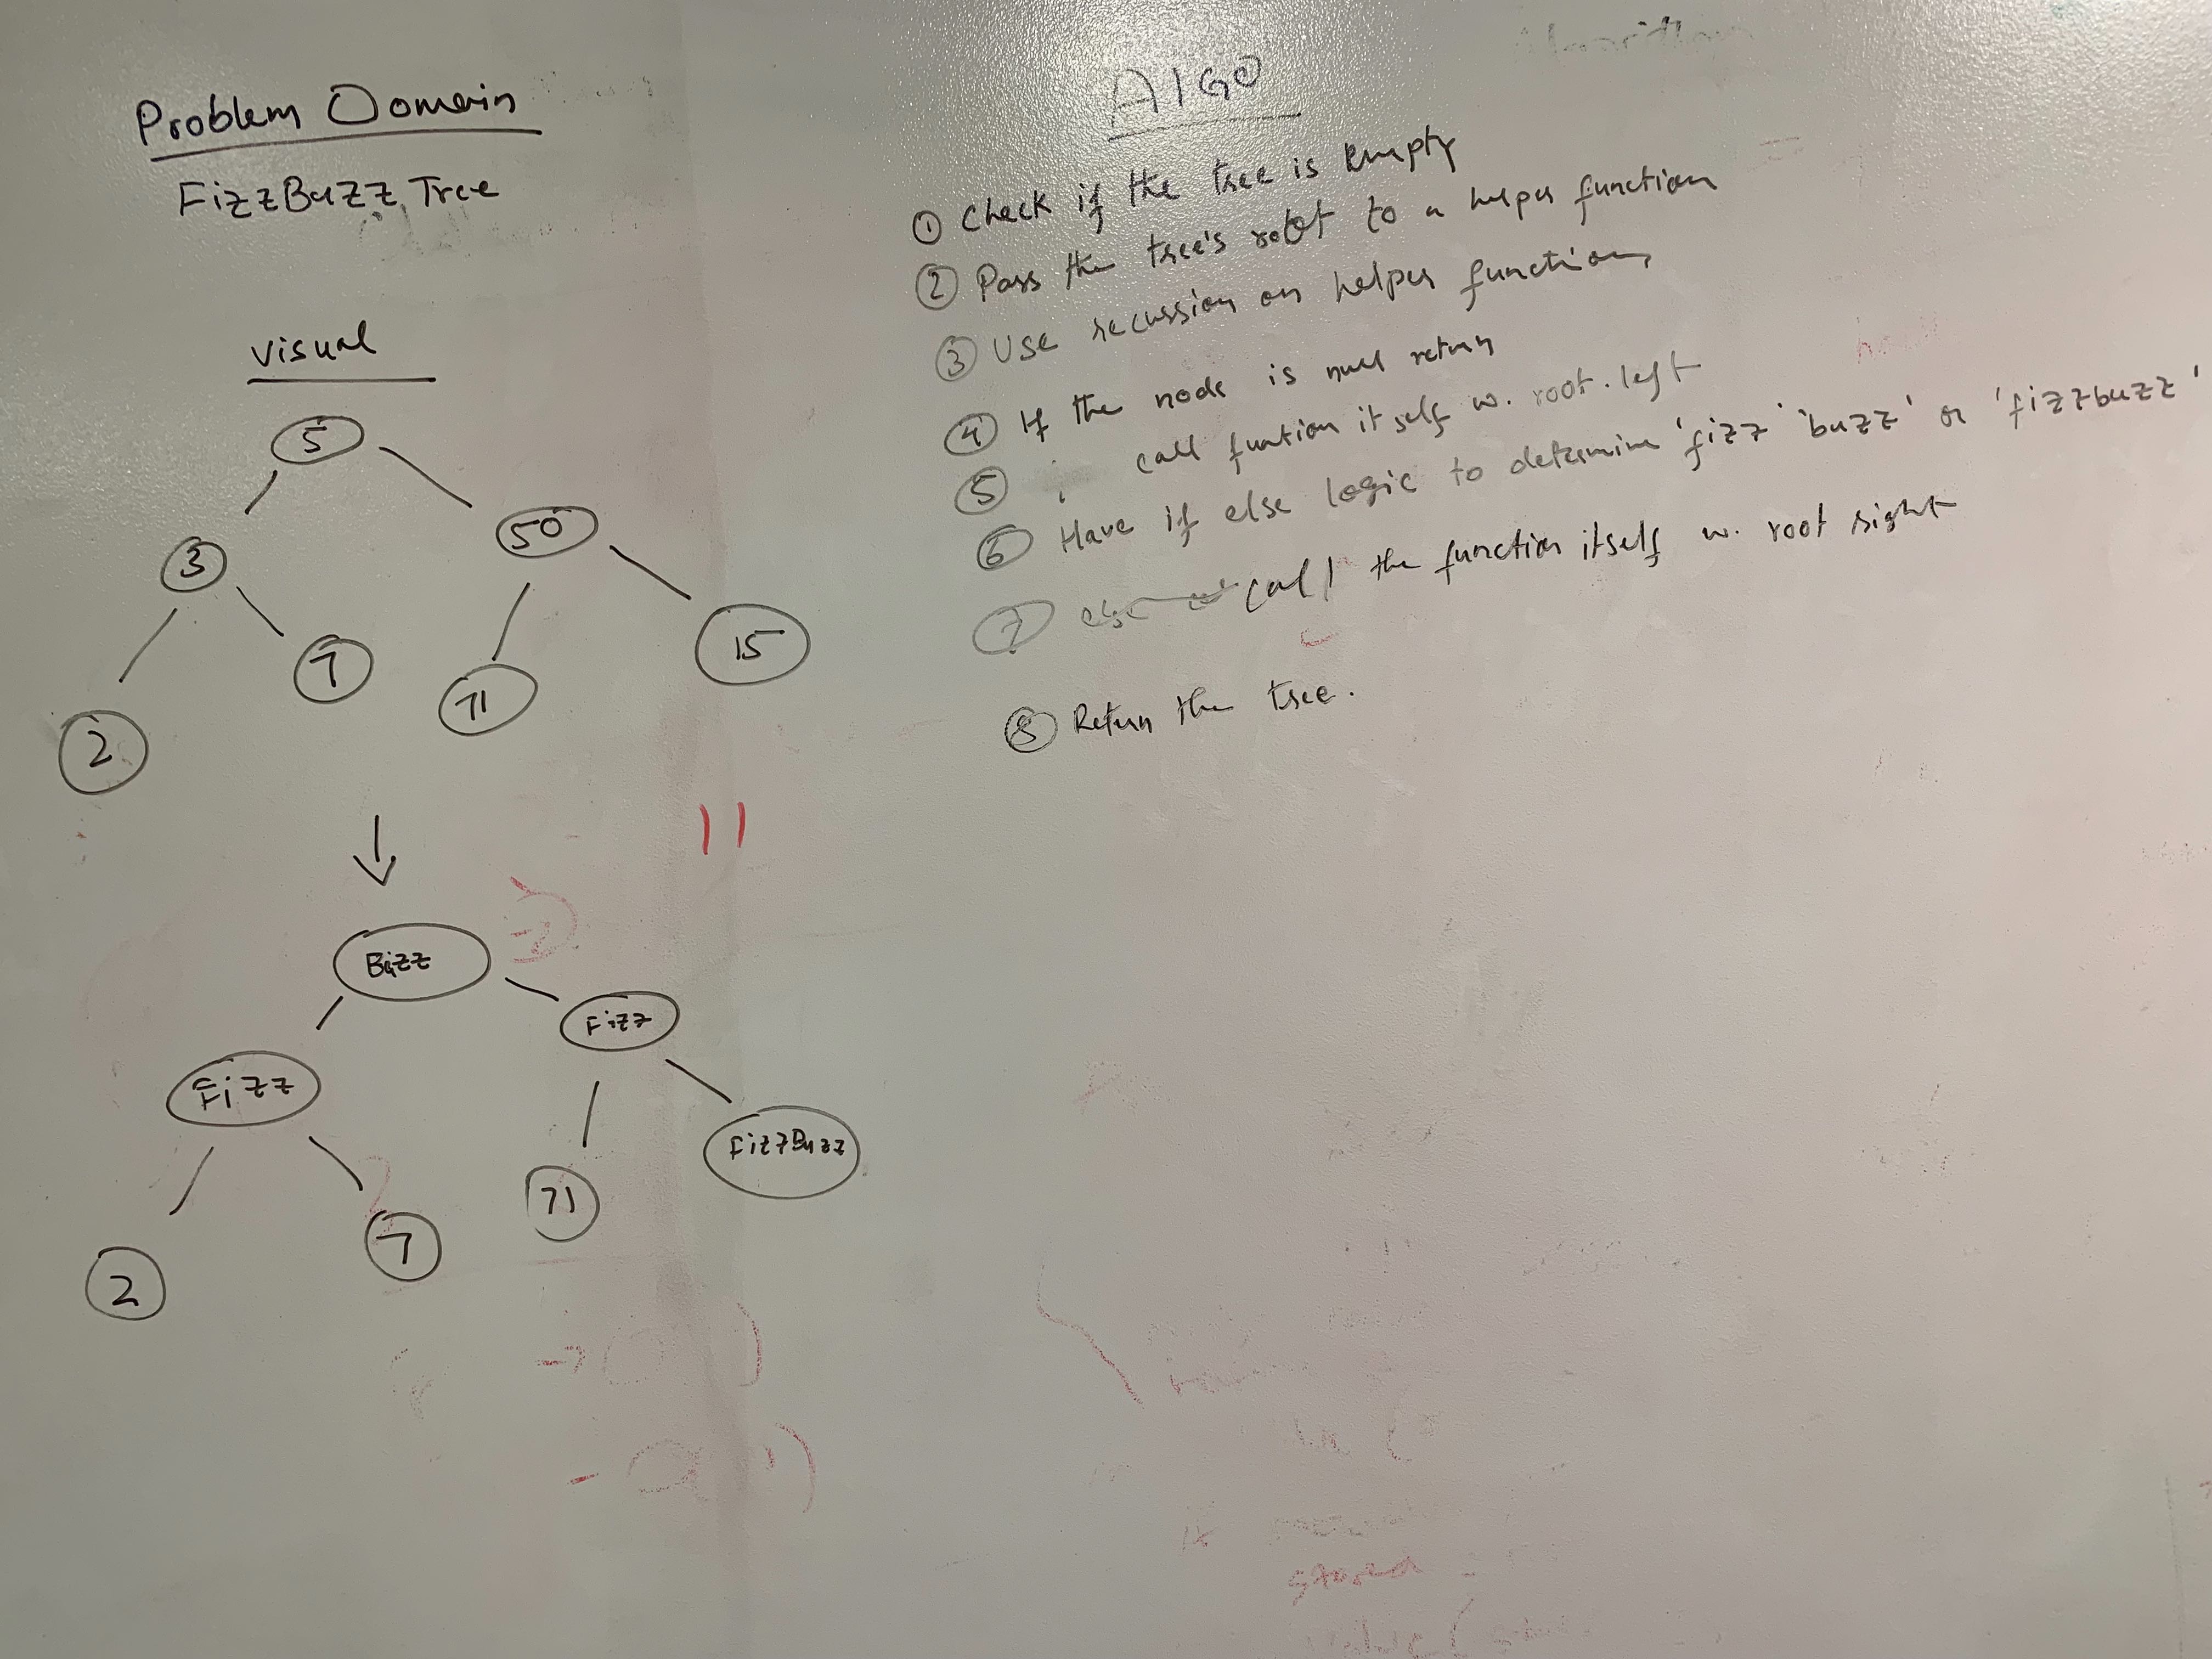 Problem Domain
FizzBuzz Tree
Visual
5
3
50
2
7
71
15
Buzz
Fizz
Fizz
2
7
71
FizzBuzz
AlGO
① Check if the tree is Empty
② Pass the tree's root to a helper function
③ Use recussion on helper function
④ If the node is null return
⑤ call funtion it self w. root.left
⑥ Have if else logic to determine 'fizz' 'buzz' or 'fizzbuzz'
⑦ call the function itself w. root right
⑧ Return the tree.
stored